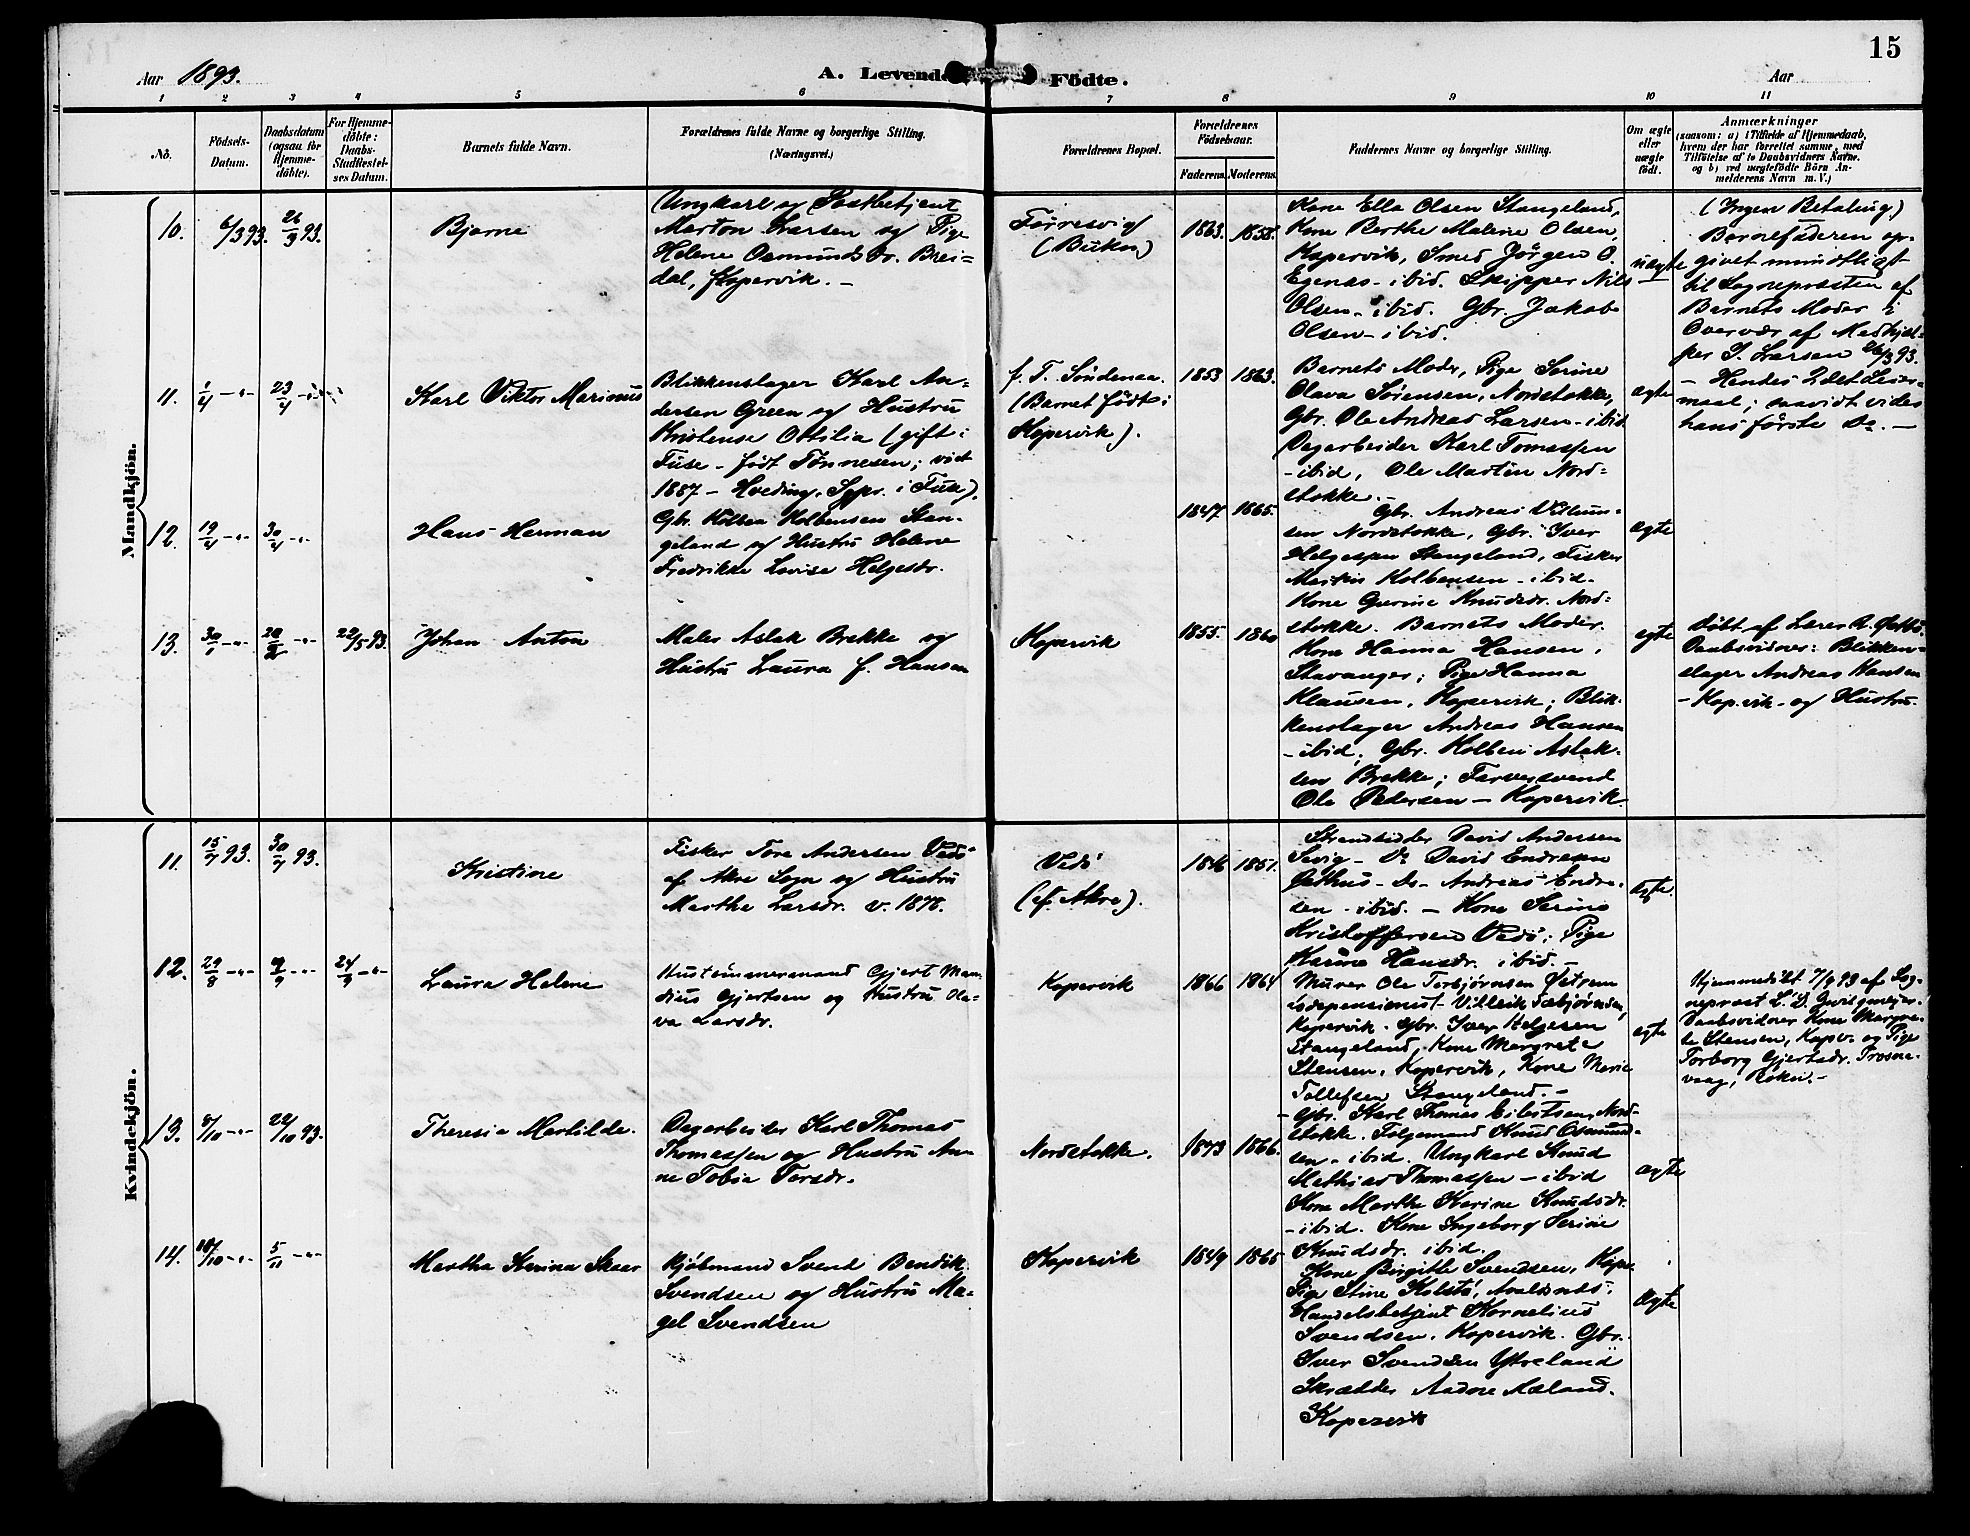 15
Aar 1893.
A. Levende Födte.
Aar
1 2 3 4 5 6 7 8 9 10 11
No.
Födsels-
Datum.
Daabsdatum
(ogsaa for
Hjemme-
döbte).
For Hjemme-
döbte:
Daabs-
Stadfæstel-
ses Datum.
Barnets fulde Navn.
Forældrenes fulde Navne og borgerlige Stilling.
(Næringsvei.)
Forældrenes Bopæl.
Forældrenes
Födselsaar.
Faderens. Moderens.
Faddernes Navne og borgerlige Stilling.
Om ægte
eller
uægte
födt.
Anmærkninger
(saasom: a) i Tilfælde af Hjemmedaab,
hvem der har forrettet samme, med
Tilföielse af to Daabsvidners Navne.
og b) ved uægtefödte Börn An-
melderens Navn m. V.)
Mandkjön.
10. 6/3 93. 26/3 93.
Bjarne
Ungkarl og Postbetjent
Marton Larsen og Pige
Helene Osmundsdr. Brei-
dal, Kopervik. -
Førresvig
(Bukn)
1863. 1858.
Kone Ella Olsen Stangeland,
Kone Berthe Malene Olsen,
Kopervik, Smed Jörgen O.
Egenæs - ibid. Skipper Nils
Olsen - ibid. Gbr. Jakob
Olsen - ibid.
uægte
(Ingen Betaling)
Barnefaderen op-
givet mundtligt
til Sognepræsten af
Barnets Moder i
Overvær af Medhjæl-
per S. Larsen 26/3 93.
- Hendes 2det Leier-
maal; saavidt vides
hans förste Do. -
11. 1/4 -"- 23/4 -"-
Karl Viktor Marinus
Blikkenslager Karl An-
dersen Green og Hustru
Kristense Ottilia (gift i
Fuse - født Tønnesen; viet
1887 - Hveding, Sgpr. i Fuse).
f. T. Søndenaa.
(Barnet født i
Kopervik).
1853 1863.
Barnets Moder, Pige Serine
Olava Sørensen, Nordstokke,
Gbr. Ole Andreas Larsen - ibid
Dagarbeider Karl Tomassen
- ibid, Ole Martin Nord-
stokke. -
ægte
12. 19/4 -"- 30/4 -"-
Hans Herman
Gbr. Kolben Kolbensen Stan-
geland og Hustru Helene
Fredrikke Lovise Helgesdr.
1847. 1865.
Gbr. Andreas
sen Nordstokke, Gbr. Iver
Helgesen Stangeland, Fisker
Martin Kolbensen - ibid.
Kone Gurine Knudsdr. Nord-
stokke. Barnets Moder.
ægte
13. 22/5 93.
Johan Anton
Maler Aslak Brekke og
Hustru Laura f. Hansen
Kopervik
1855. 1860
Kone Hanna Hansen,
Stavanger; Pige Hanna
Klausen, Kopervik; Blik-
kenslager Andreas Hansen
- ibid; Gbr. Kolben Aslak-
sen Brekke; Farversvend
Ole Pedersen - Kopervik.
ægte
Døbt af Lærer
Daabsvidner: Blikken-
slager Andreas Hansen
- Kop.vik - og Hustru.
Kvindekjön.
11. 15/7 93. 30/7 93.
Kristine
Fisker Tore Andersen Vedø
af Akre Sogn og Hustru
Marthe Larsdr. v. 1878.
Vedø
(af Akre).
1846 1851.
Strandsidder David Andersen
Sevig - Do David Endresen
Østhus - Do - Andreas Endre-
sen - ibid. - Kone Serine
Kristoffersen Vedø; Pige
Karine Hansdr. ibid. -
ægte.
12. 29/8 -"- 9/9 -"- 24/9 -"-
Laura Helene
Hustømmermand Gjert Man-
dius Gjertsen og Hustru Ola-
va Larsdr.
Kopervik
1866 1864
Murer Ole Torbjørnsen Østrem
Lodspensionist - Villeik Tobjørnsen,
Kopervik. Gbr. Iver Helgesen
Stangeland, Kone Margrete
Stensen, Kopervik, Kone Marie
Tollefsen Stangeland. -
ægte
Hjemmedøbt 7/9 93 af Sog-
nepræst L. D. Gvilgmeyer.
Daabsvidner Kone Margre-
te Stensen, Kopv. og Pige
Torborg Gjertsdr. Trosne-
vaag, Bokn. -
13. 8/10 -"- 22/10 93.
Theresie Martilde.
Dagarbeider Karl Thomas
Thomassen og Hustru An-
ne Tobia Torsdr.
Nordstokke.
1873 1866.
- Gbr. Karl Thomas Eilertsen, Nord-
stokke. Følgemand Knud Osmund-
sen - ibid. Ungkarl Knud
Mathias Thomassen - ibid
Kone Marthe Karine Knudsdr.
- ibid. Kone Ingeborg Serine
Knudsdr. ibid.
ægte
14. 10/10 -"- 5/11 -"-
Martha Serina Skaar
Kjøbmand Svend Bendik
Svendsen og Hustru Ma-
gel Svendsen
Kopervik
1849 1865
Kone Birgitte Svendsen, Kopv.
Pige Stine Kolstø, Avaldsnæs;
Handelsbetjent Kornelius
Svendsen, Kopervik. Gbr.
Iver Svendsen Ytreland
Skrædder Aadne Aaland.
Kopervik
ægte